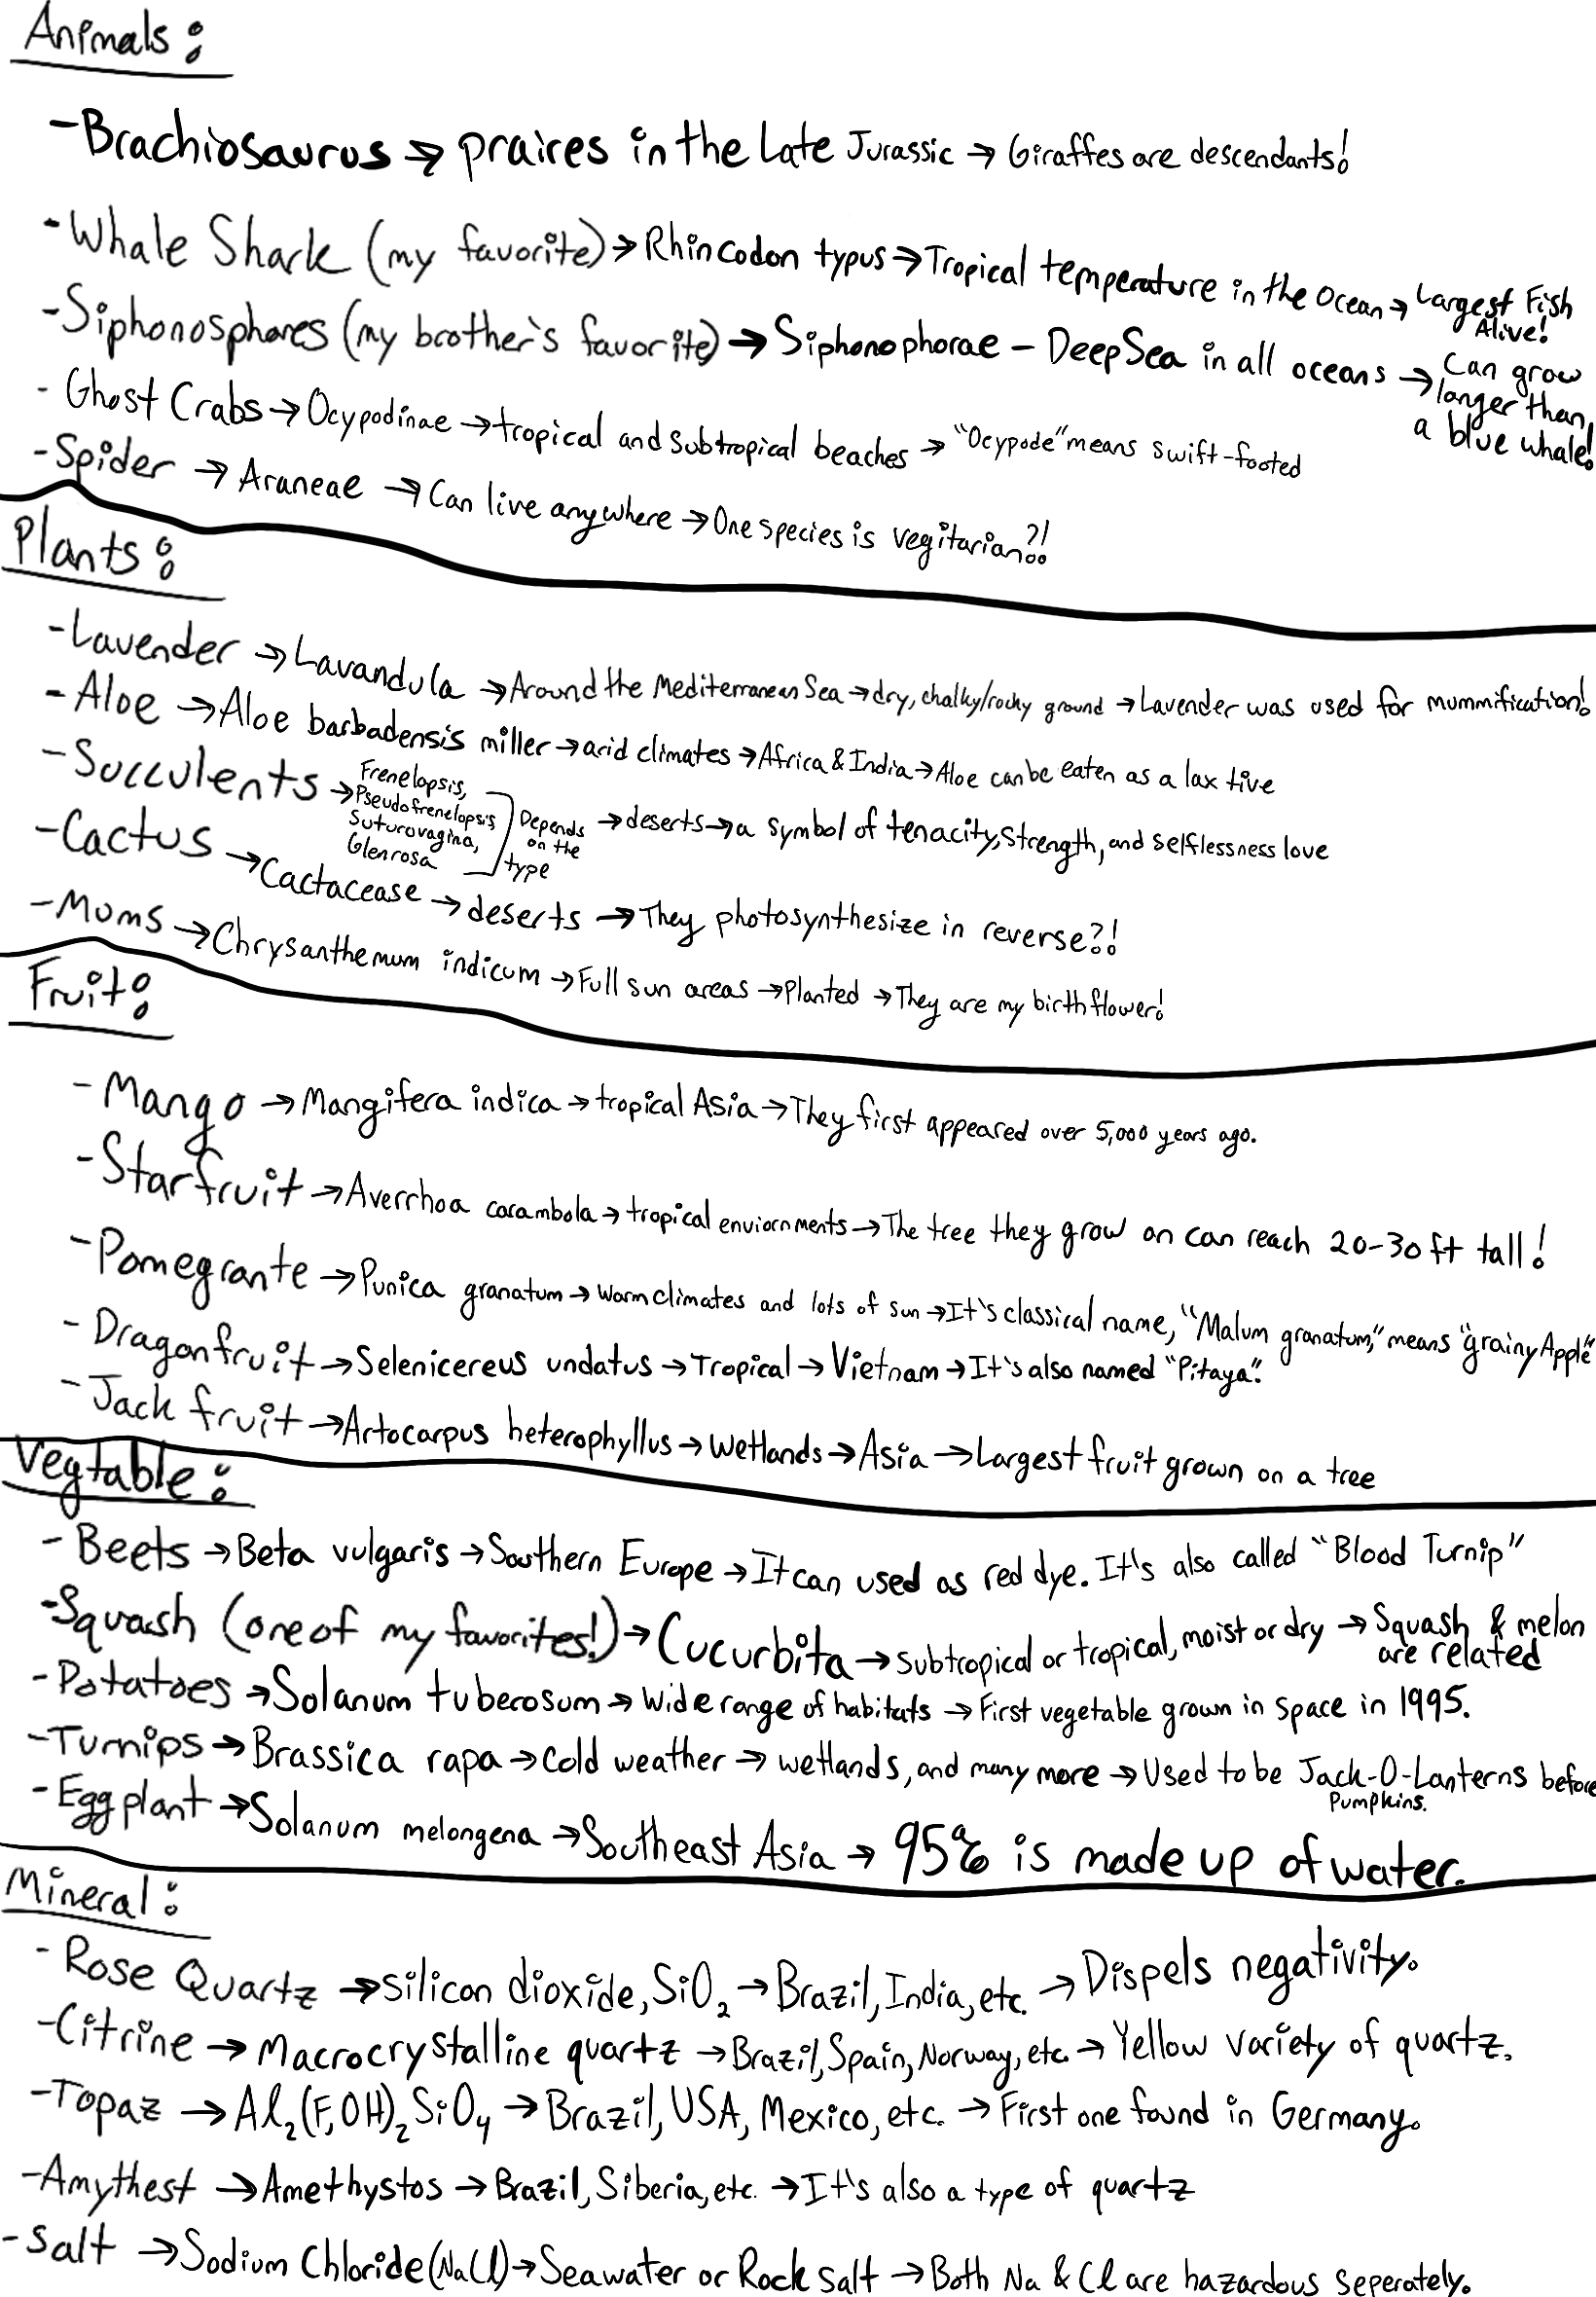 Animals:
-Brachiosaurus → praires in the late Jurassic → Giraffes are descendants!
-Whale Shark (my favorite) → Rhincodon typus → Tropical temperature in the ocean → Largest Fish Alive!
-Siphonosphores (my brother's favorite) → Siphonophorae - Deep Sea in all oceans → Can grow longer than a blue whale!
- Ghost Crabs → Ocypodinae → tropical and subtropical beaches → "Ocypode" means swift-footed
-Spider → Araneae → Can live anywhere → One species is vegitarian?!
Plants:
-Lavender → Lavandula → Around the Mediterranean Sea → dry, chalky/rocky ground → Lavender was used for mummification!
-Aloe → Aloe barbadensis miller → arid climates → Africa & India → Aloe can be eaten as a lax tive
-Succulents → Frenelopsis, Pseudofrenelopsis Suturovagina, Glenrosa Depends on the type → deserts → a symbol of tenacity, strength, and selflessness love
-Cactus → Cactacease → deserts → They photosynthesize in reverse?!
-Mums → Chrysanthemum indicum → Full sun areas → Planted → They are my birth flower!
Fruit:
-Mango → Mangifera indica → tropical Asia → They first appeared over 5,000 years ago.
-Starfruit → Averrhoa carambola → tropical enviornments → The tree they grow on can reach 20-30 ft tall!
-Pomegrante → Punica granatum → Warm climates and lots of sun → It's classical name, "Malum granatum," means "grainy Apple"
-Dragonfruit → Selenicereus undatus → Tropical → Vietnam → It's also named "Pitaya".
-Jack fruit → Artocarpus heterophyllus → Wetlands → Asia → Largest fruit grown on a tree
Vegtable:
-Beets → Beta vulgaris → Southern Europe → It can used as red dye. It's also called "Blood Turnip"
-Squash (one of my favorites!) → Cucurbita → subtropical or tropical, moist or dry → Squash & melon are related
-Potatoes → Solanum tuberosum → Wide range of habitats → First vegetable grown in space in 1995.
-Turnips → Brassica rapa → Cold weather → wetlands, and many more → Used to be Jack-O-Lanterns before Pumpkins.
-Egg plant → Solanum melongena → Southeast Asia → 95% is made up of water.
Mineral:
-Rose Quartz → silicon dioxide, SiO₂ → Brazil, India, etc. → Dispels negativity.
-Citrine → Macrocrystalline quartz → Brazil, Spain, Norway, etc. → Yellow variety of quartz.
-Topaz → Al₂(F,OH)₂SiO₄ → Brazil, USA, Mexico, etc. → First one found in Germany.
-Amythest → Amethystos → Brazil, Siberia, etc. → It's also a type of quartz
-Salt → Sodium Chloride (NaCl) → Seawater or Rock salt → Both Na & Cl are hazardous seperately.